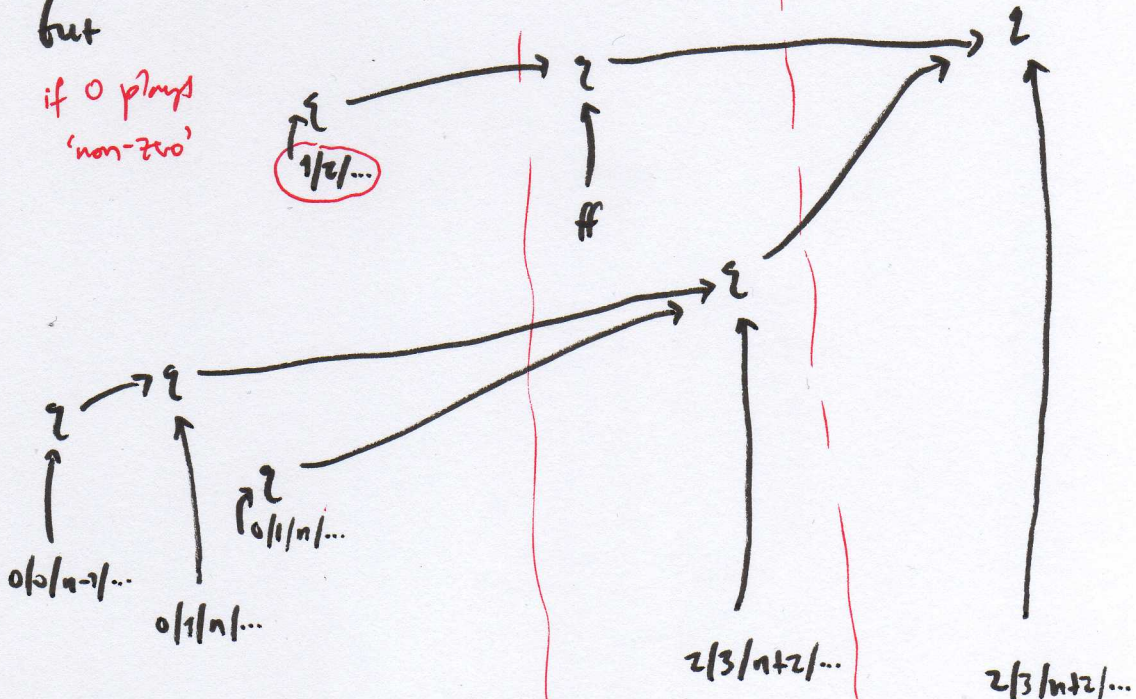 but
if 0 plays
'non-zero'
q
q
q
1/2/...
ff
q
q
q
q
0/1/n/...
0/0/n-1/...
0/1/n/...
2/3/n+2/...
2/3/n+2/...